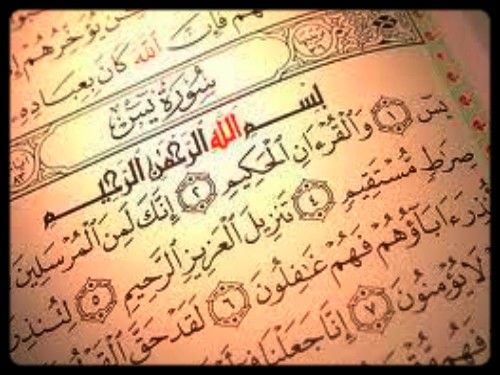 يُؤَخِّرُهُمْ
فَإِنَّ ٱللَّهَ كَانَ بِعِبَادِهِ
سُورَةُ يسٓ
بِسْمِ ٱللَّهِ ٱلرَّحْمَٰنِ ٱلرَّحِيمِ
يسٓ ١ وَٱلْقُرْءَانِ ٱلْحَكِيمِ ٢ إِنَّكَ لَمِنَ ٱلْمُرْسَلِينَ
صِرَٰطٍ مُّسْتَقِيمٍ ٤ تَنزِيلَ ٱلْعَزِيزِ ٱلرَّحِيمِ ٥ لِتُنذِرَ
ءَابَآؤُهُمْ فَهُمْ غَٰفِلُونَ ٦ لَقَدْ حَقَّ ٱلْقَوْلُ
لَا يُؤْمِنُونَ ٧ إِنَّا جَعَلْنَا فِىٓ
فَهُم